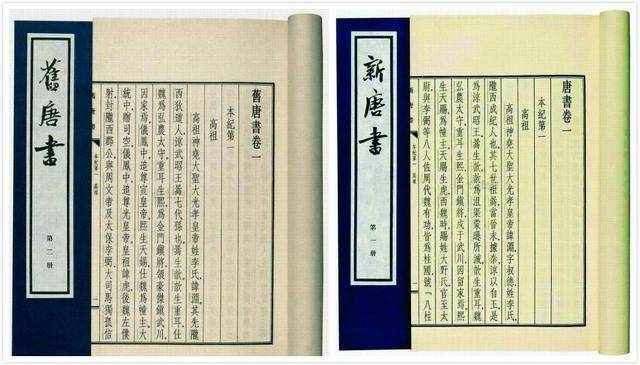 舊唐書
第二册
舊唐書卷一
本紀第一
高祖
高祖神堯大聖大光孝皇帝姓李氏,諱淵。其先隴
西狄道人,涼武昭王暠七代孫也。暠生歆。歆生重耳,仕
魏爲弘農太守。重耳生熙,爲金門鎮將,領豪傑鎮武川,
因家焉。儀鳳中,追尊宣皇帝。熙生天錫,仕魏爲幢主。大
統中,贈司空。儀鳳中,追尊光皇帝。皇祖諱虎,後魏左僕
射,封隴西郡公,與周文帝及太保李弼、大司馬獨孤信
本紀第一 高祖
新唐書
第一册
唐書卷一
本紀第一
高祖
高祖神堯大聖大光孝皇帝諱淵,字叔德,姓李氏,
隴西成紀人也。其七世祖暠,當晉末,據秦、涼以自王,是
爲涼武昭王。暠生歆,歆爲沮渠蒙遜所滅。歆生重耳,魏
弘農太守。重耳生熙,金門鎮將,戍于武川,因留家焉。熙
生天賜,爲幢主。天賜生虎,西魏時,賜姓大野氏,官至太
尉,與李弼等八人佐周代魏有功,皆爲柱國,號「八柱
本紀第一 高祖